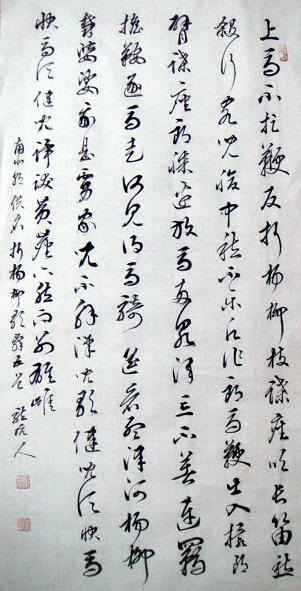 上馬不捉鞭反折楊柳枝蹀座吹長笛愁
殺行客兒腹中愁不樂願作郎馬鞭出入擐郎
臂蹀座郎膝邊放馬兩泉澤忘不著連羈
擔鞍逐馬走何見得馬騎遙看孟津河楊柳
鬱婆娑我是虜家兒不解漢兒歌健兒須快馬
快馬須健兒跋黃塵下然後別雄雌
南北朝佚名折楊柳歌辭五首 人